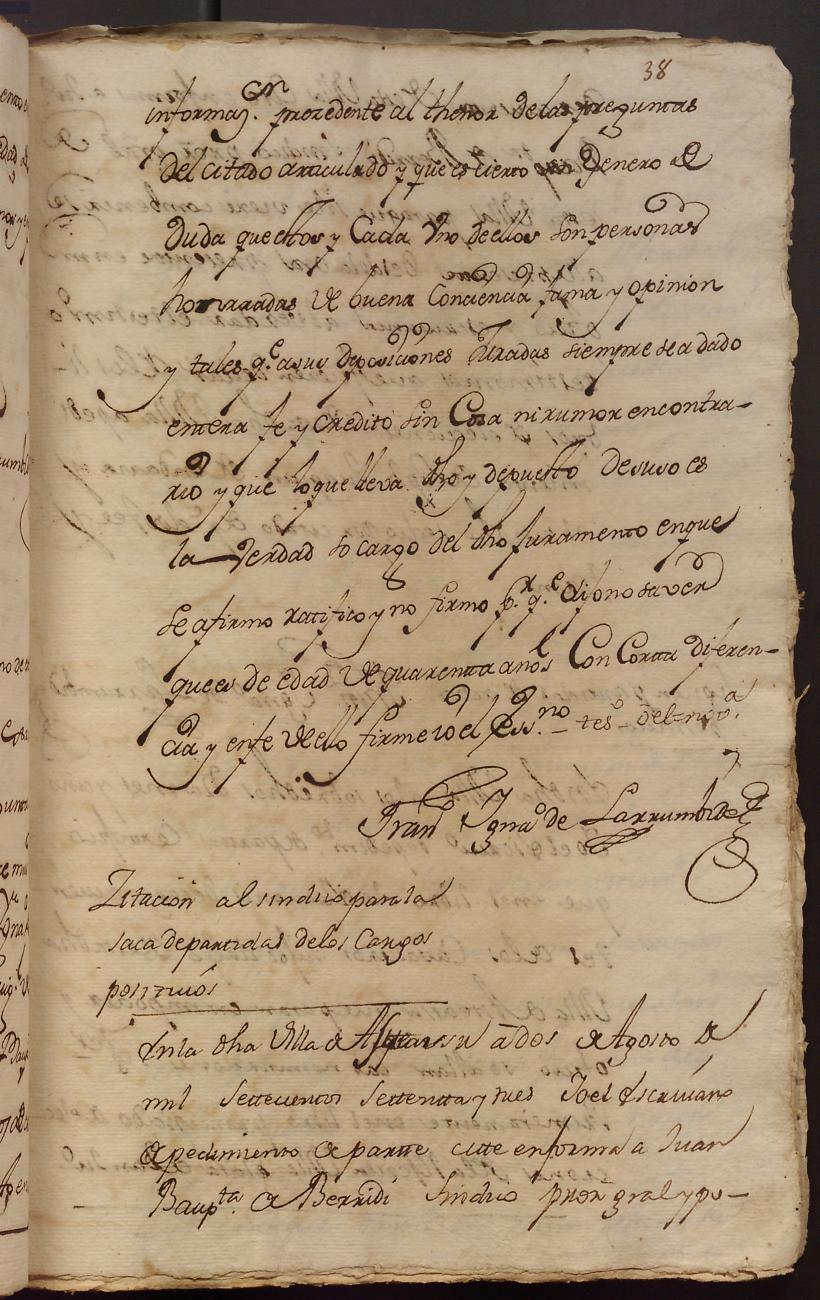 38
informaz.on prezedente al thenor de las preguntas
del citado articulado y que es cierto sin Genero de
Duda que estos y Cada Uno de ellos son personas
honrradas de buena Conciencia fama y opinion
y tales q.e a sus deposiciones Juradas siempre se a dado
entera fe y credito sin Cosa ni rumor en contra-
rio y que lo que lleva dho y depuesto de suso es
la Verdad so cargo del dho Juramento en que
se afirmo ratifico y no firmo p.r q.e dijo no saver
que es de edad de quarenta años Con Corta diferen-
cia y en fe de ello firme io el ess.no
Fran.co Igna.o de Larrumbide
Zitacion al sindico para la
saca de partidas de los Cargos
En la dha Villa de a dos de Agosto de
mil settecientos settenta y tres Io el Escrivano
a pedimiento de parte cite en forma a Juan
Baup.ta de Berridi Sindico pror gral y po-